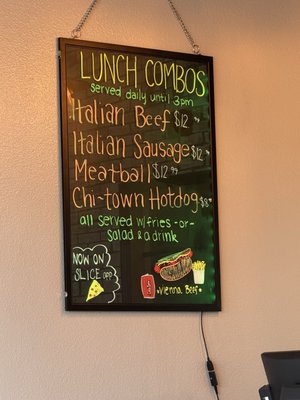 LUNCH COMBOS
served daily until 3pm
Italian Beef $12.99
Italian Sausage $12.99
Meatball $12.99
Chi-town Hotdog $8.
all served w/fries -or-
salad & a drink
NOW ON
SLICE app
Vienna Beef